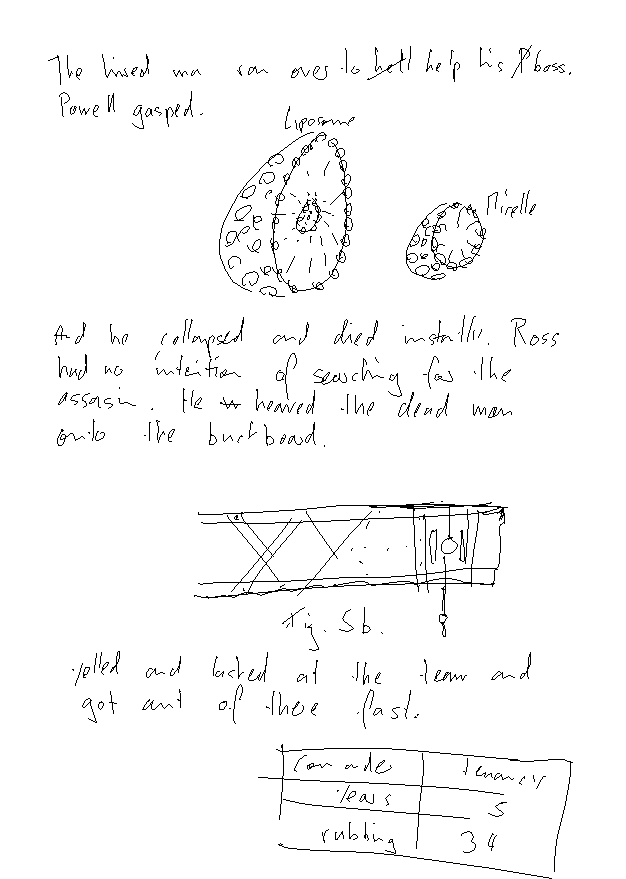 The hired man ran over to hell help his P boss.
Powell gasped.
Liposome
Micelle
And he collapsed and died instantly. Ross
had no intention of searching for the
assasin. He w heaved the dead man
onto the buckboard.
Fig. 5b.
yelled and lashed at the team and
got out of there fast.
comrades tenancy
years 5
rubbing 34